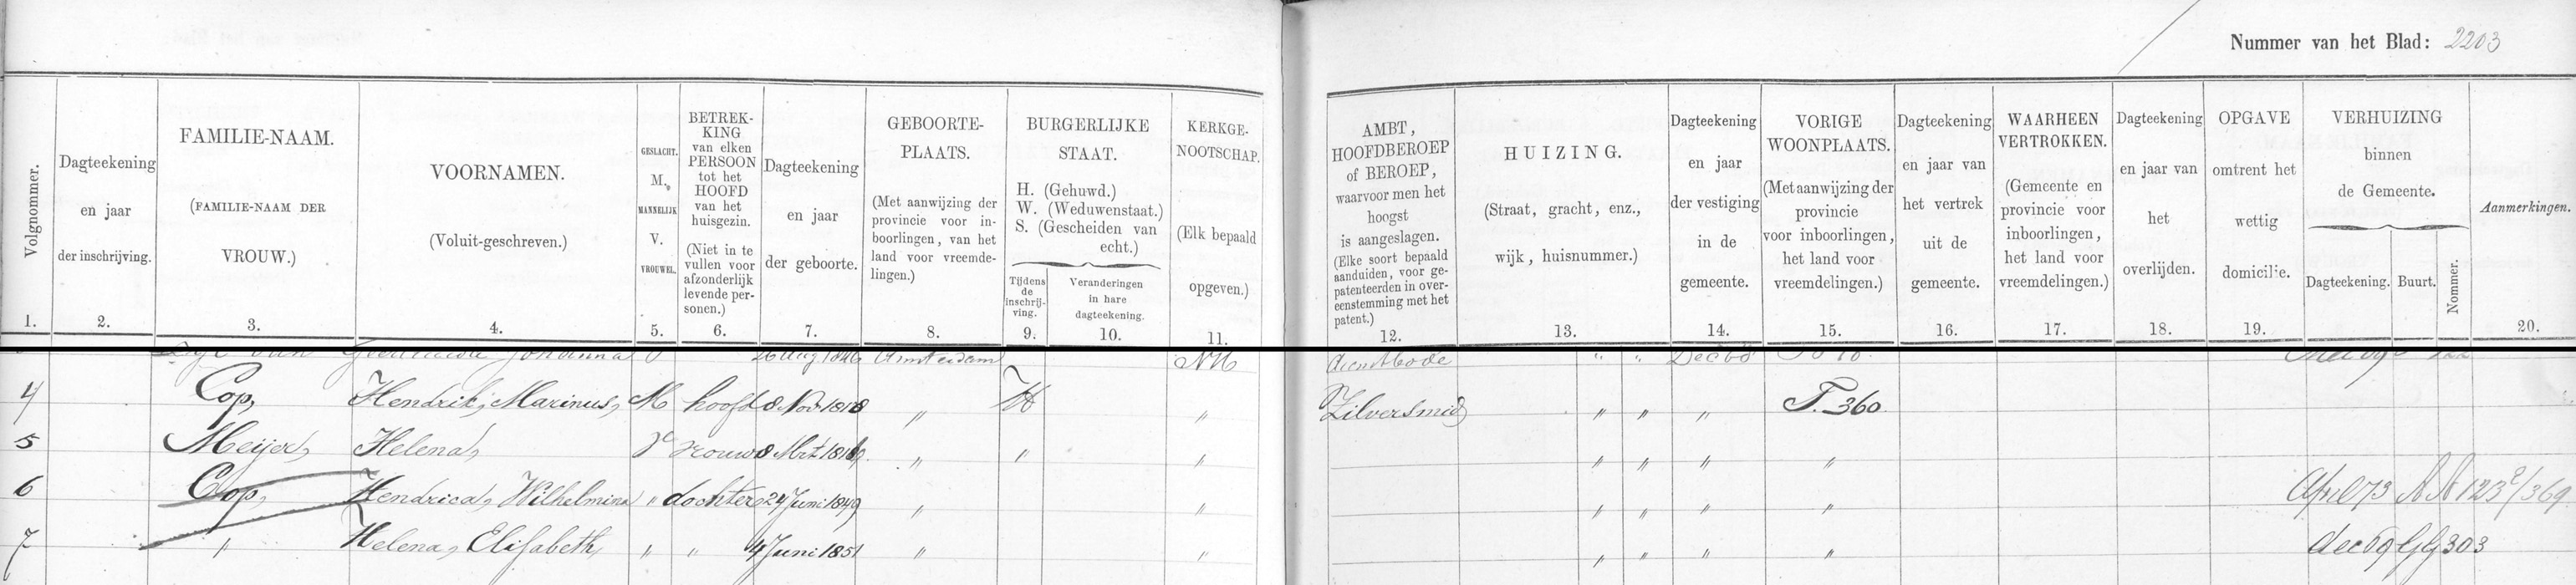 Nummer van het Blad: 2203
Volgnommer.
1.
Dagteekening
en jaar
der inschrijving.
2.
FAMILIE-NAAM.
(FAMILIE-NAAM DER
VROUW.)
3.
VOORNAMEN.
(Voluit-geschreven.)
4.
GESLACHT.
M.
MANNELIJK
V.
VROUWEL.
5.
BETREK-
KING
van elken
PERSOON
tot het
HOOFD
van het
huisgezin.
(Niet in te
vullen voor
afzonderlijk
levende per-
sonen.)
6.
Dagteekening
en jaar
der geboorte.
7.
GEBOORTE-
PLAATS.
(Met aanwijzing der
provincie voor in-
boorlingen, van het
land voor vreemde-
lingen.)
8.
BURGERLIJKE
STAAT.
H. (Gehuwd.)
W. (Weduwenstaat.)
S. (Gescheiden van
echt.)
Tijdens
de
inschrij-
ving.
9.
Veranderingen
in hare
dagteekening.
10.
KERKGE-
NOOTSCHAP.
(Elk bepaald
opgeven.)
11.
AMBT,
HOOFDBEROEP
of BEROEP,
waarvoor men het
hoogst
is aangeslagen.
(Elke soort bepaald
aanduiden, voor ge-
patenteerden in over-
eenstemming met het
patent.)
12.
HUIZING.
(Straat, gracht, enz.,
wijk, huisnummer.)
13.
Dagteekening
en jaar
der vestiging
in de
gemeente.
14.
VORIGE
WOONPLAATS.
(Met aanwijzing der
provincie
voor inboorlingen,
het land voor
vreemdelingen.)
15.
Dagteekening
en jaar van
het vertrek
uit de
gemeente.
16.
WAARHEEN
VERTROKKEN.
(Gemeente en
provincie voor
inboorlingen,
het land voor
vreemdelingen.)
17.
Dagteekening
en jaar van
het
overlijden.
18.
OPGAVE
omtrent het
wettig
domicilie.
19.
VERHUIZING
binnen
de Gemeente.
Dagteekening. Buurt. Nommer.
Aanmerkingen.
20.
van Johanna 26 Aug 1846 Amsterdam NH dienstbode " " Dec 68
4 Cop, Hendrik, Marinus, M hoofd 8 Nov 1818 " H " Zilversmid " " " T. 360
5 Meijer, Helena, V vrouw 8 Mrt " " " " " " "
6 Cop, Hendrica, Wilhelmina " dochter 24 Juni 1849 " " " " " " April 73 NN 123 /369
7 " Helena, Elisabeth, " " 4 Juni 1851 " " " " " " dec 69 GG 303